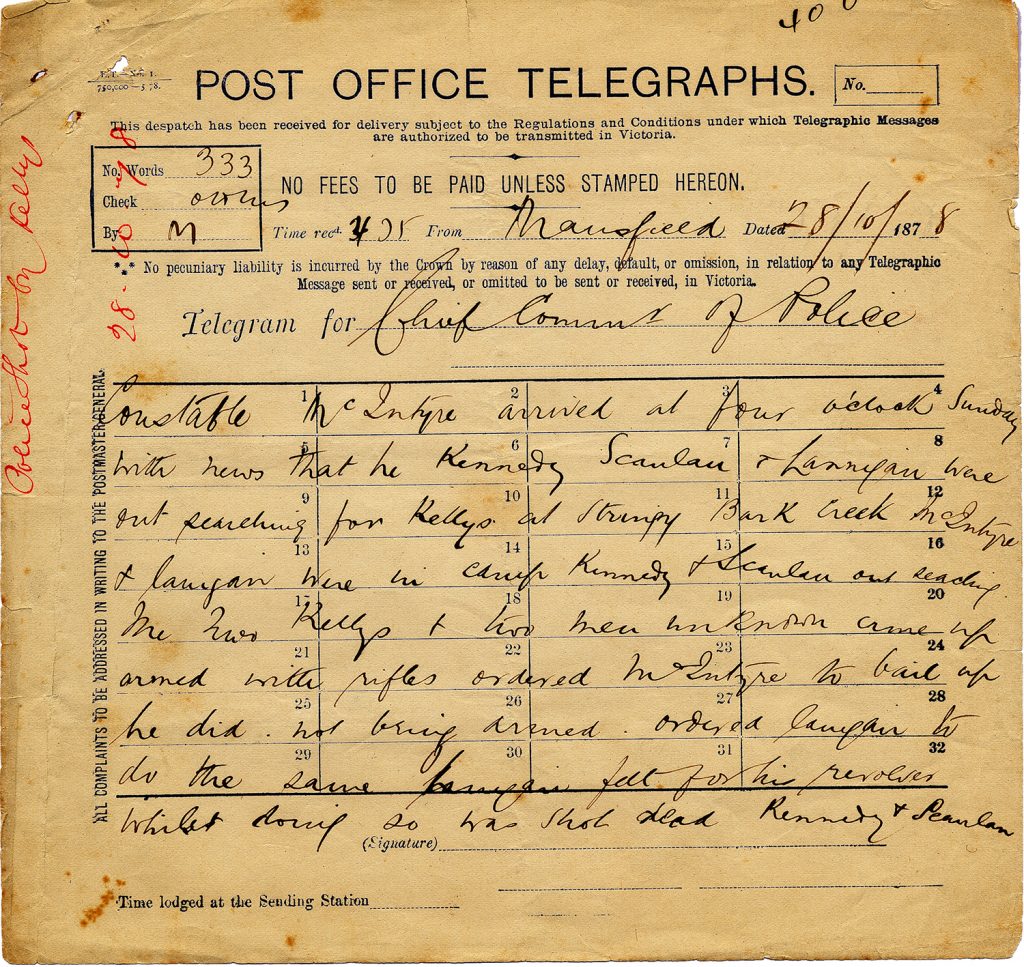 400
E.T.—No. 1.
750,000—5.78.
POST OFFICE TELEGRAPHS.
No.
This despatch has been received for delivery subject to the Regulations and Conditions under which Telegraphic Messages
are authorized to be transmitted in Victoria.
No. Words 333
Check
By M
NO FEES TO BE PAID UNLESS STAMPED HEREON.
Time recd. From Mansfield Dated 28/10/1878
*** No pecuniary liability is incurred by the Crown by reason of any delay, default, or omission, in relation to any Telegraphic
Message sent or received, or omitted to be sent or received, in Victoria.
Telegram for Chief Commr of Police
Constable McIntyre arrived at four o'clock Sunday
with news that he Kennedy Scanlan & Lannigan were
out searching for Kellys at Stringy Bark Creek McIntyre
& lanigan were in camp Kennedy & Scanlan out seaching
The two Kellys & two men unknown came up
armed with rifles ordered McIntyre to bail up
he did . not being armed . ordered lanigan to
do the same lanigan felt for his revolver
whilst doing so was shot dead Kennedy & Scanlan
1 2 3 4
5 6 7 8
9 10 11 12
13 14 15 16
17 18 19 20
21 22 23 24
25 26 27 28
29 30 31 32
(Signature)
Time lodged at the Sending Station
ALL COMPLAINTS TO BE ADDRESSED IN WRITING TO THE POSTMASTER-GENERAL.
Police Shot by Kellys
28.10.78